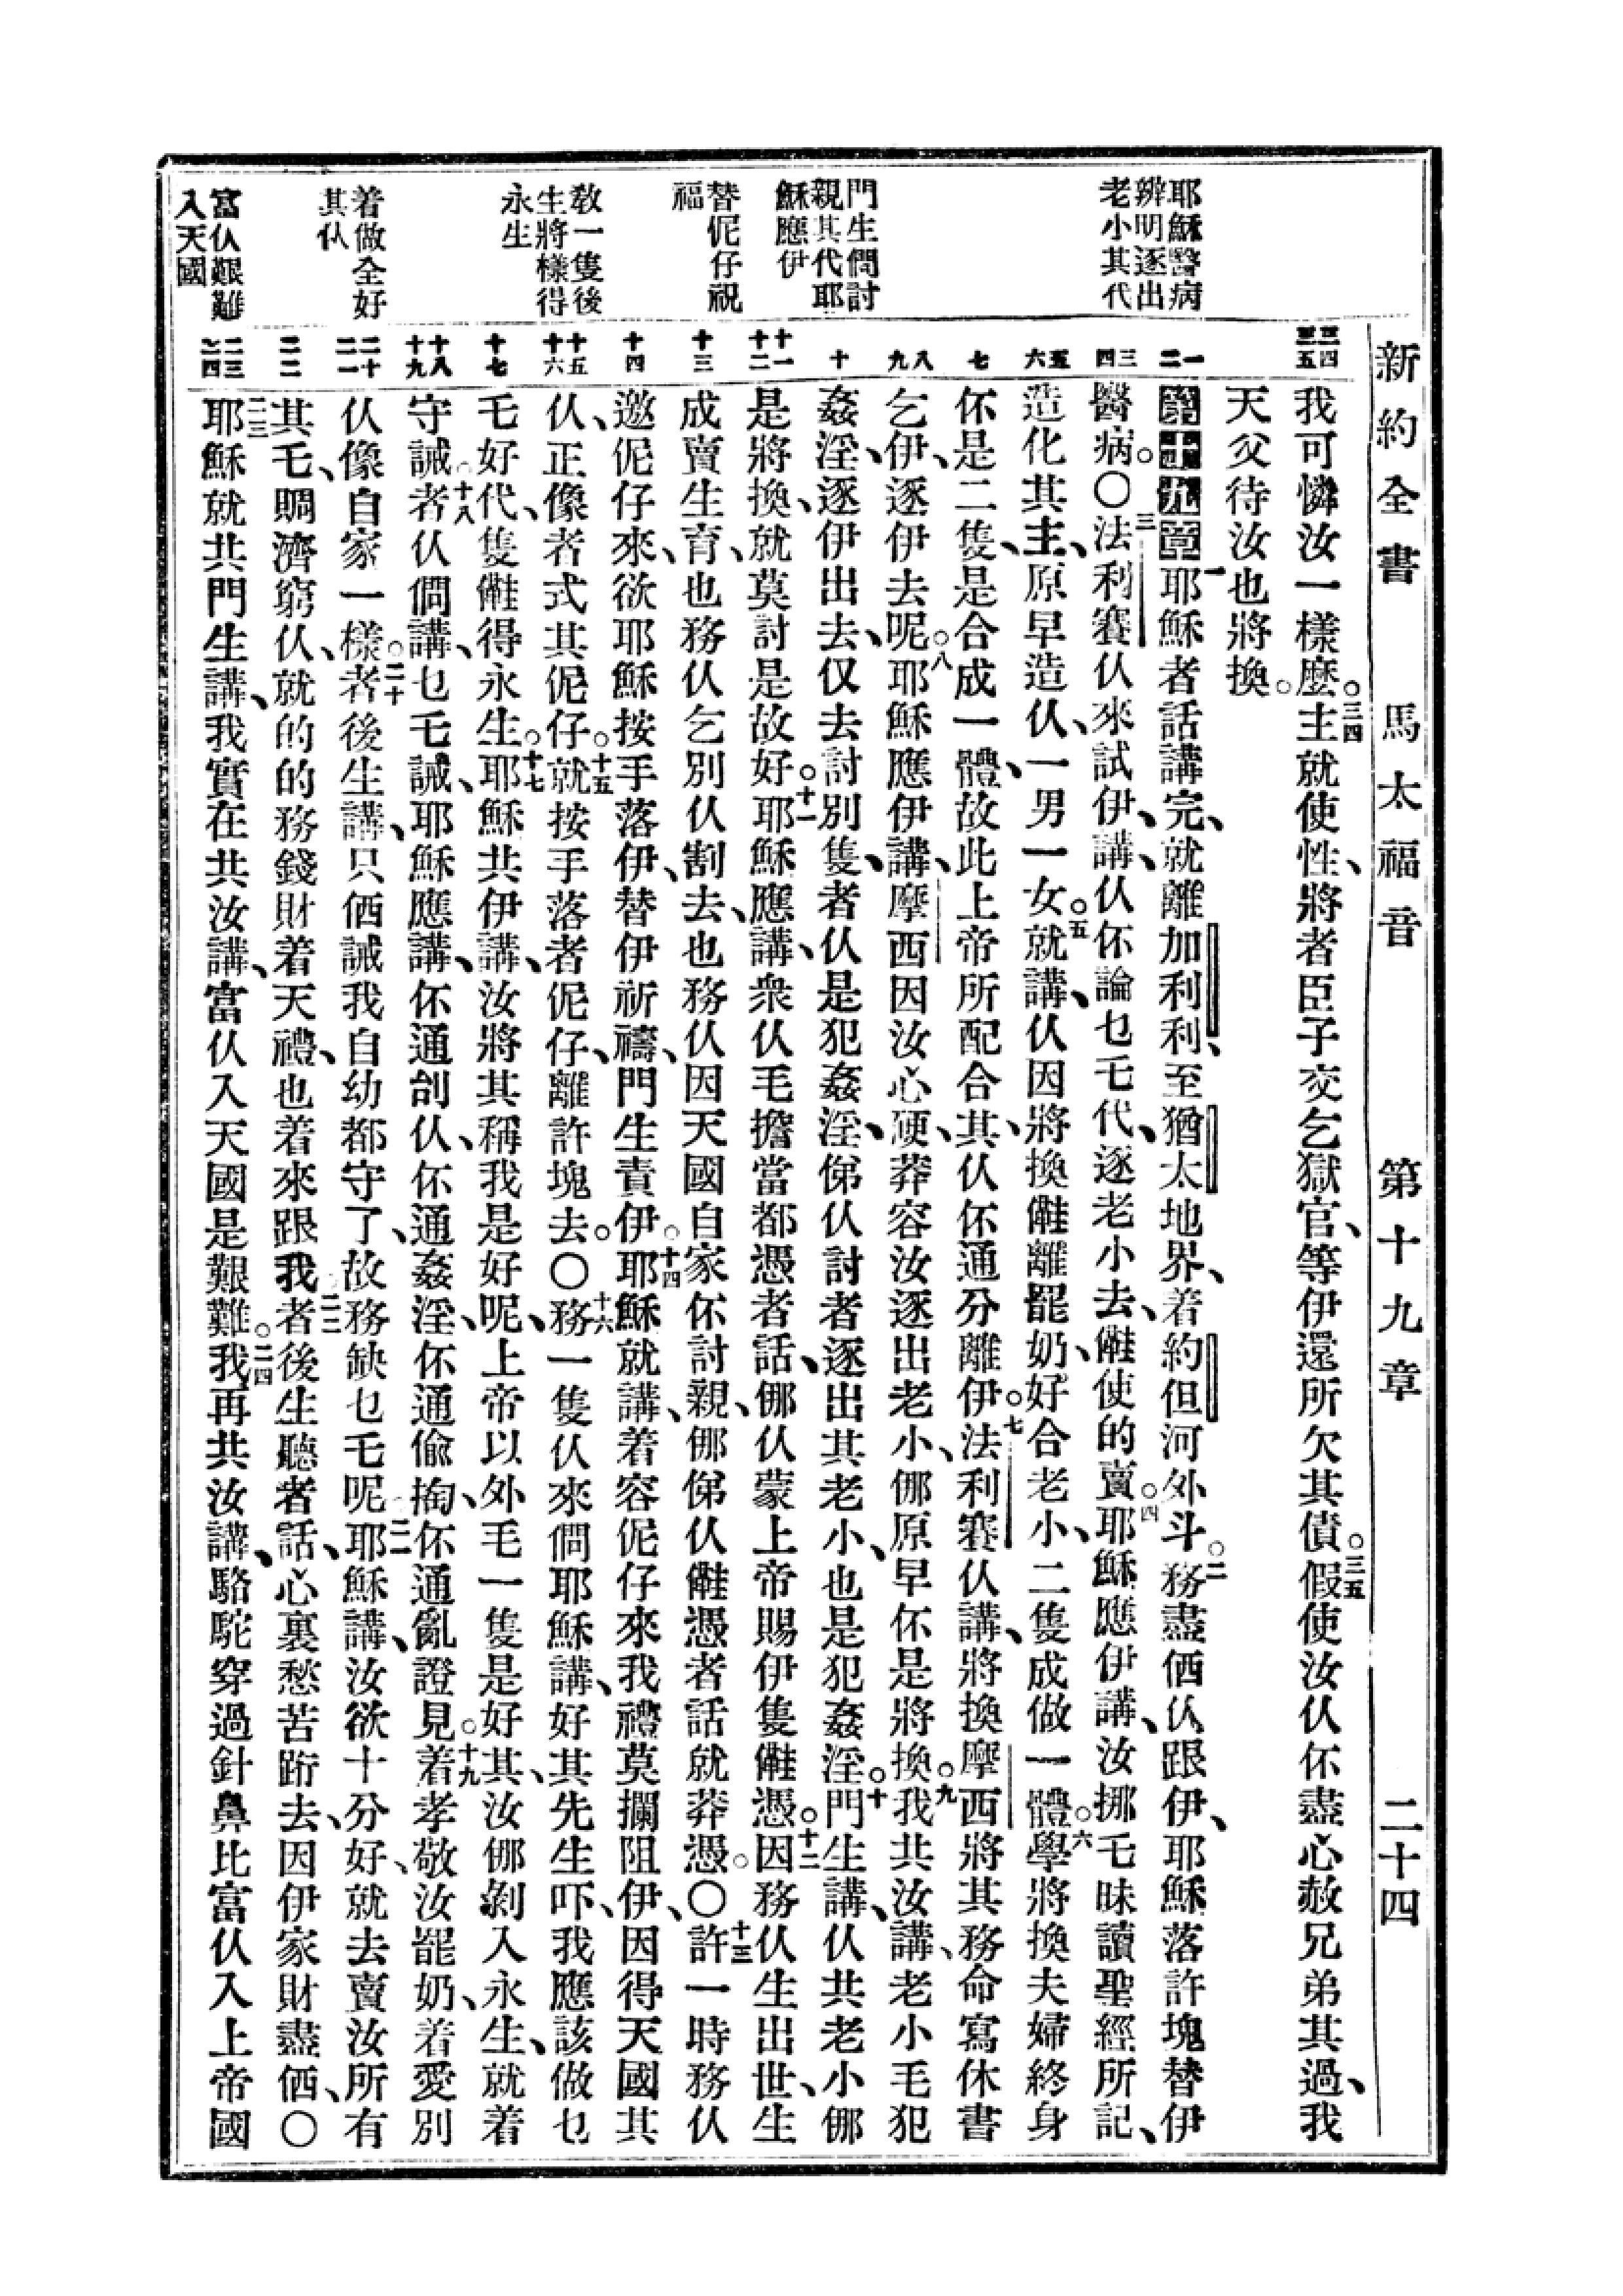 新約全書　馬太福音　第十九章　二十四
三四
三五
我可憐汝一樣麽。三四主就使性、將者臣子交乞獄官、等伊還所欠其債。三五假使汝仏伓盡心赦兄弟其過、我
天父待汝也將換。
耶穌醫病
辨明逐出
老小其代
一
二
第十九章一耶穌者話講完、就離加利利、至猶太地界、着約但河外斗。二務盡価仏跟伊、耶穌落許塊替伊
三
四
醫病。〇三法利賽仏來試伊、講、仏伓論乜乇代、逐老小去、𣍐使的賣。四耶穌應伊講、汝挪毛昧讀聖經所記、
五
六
造化其主、原早造仏、一男一女。五就講、仏因將換𣍐離罷奶、好合老小、二隻成做一體。六學將換夫婦終身
七
伓是二隻、是合成一體、故此上帝所配合其、仏伓通分離伊。七法利賽仏講、將換摩西將其務命寫休書
八
九
乞伊、逐伊去呢。八耶穌應伊講、摩西因汝心硬、莽容汝逐出老小、倻原早伓是將換。九我共汝講、老小毛犯
十
姦淫、逐伊出去、仅去討別隻、者仏是犯姦淫、俤仏討者逐出其老小、也是犯姦淫。十門生講、仏共老小倻
門生問討
親其代耶
穌應伊
十一
十二
是將換、就莫討是故好。十一耶穌應講、衆仏毛擔當都憑者話、倻仏蒙上帝賜伊隻𣍐憑。十二因務仏生出世、生
十三
成賣生育、也務仏乞別仏割去、也務仏因天國自家伓討親、倻俤仏𣍐憑者話就莽憑。〇十三許一時務仏
替伲仔祝
福
十四
邀伲仔來、欲耶穌按手落伊、替伊祈禱、門生責伊。十四耶穌就講、着容伲仔來我禮、莫攔阻伊、因得天國其
十五
十六
仏、正像者式其伲仔。十五就按手落者伲仔、離許塊去。〇十六務一隻仏來問耶穌講、好其先生吓、我應該做乜
教一隻後
生將樣得
永生
十七
乇好代、隻𣍐得永生。十七耶穌共伊講、汝將其稱我是好呢、上帝以外毛一隻是好其、汝倻剝入永生、就着
十八
十九
守誡。十八者仏問講、乜乇誡、耶穌應講、伓通刣仏、伓通姦淫、伓通偸掏、伓通亂證見。十九着孝敬汝罷奶、着愛別
二十
二一
仏像自家一樣。二十者後生講、只価誡我自幼都守了、故務缺乜乇呢。二一耶穌講、汝欲十分好、就去賣汝所有
着做全好
其仏
二二
其乇、賙濟窮仏、就的的務錢財着天禮、也着來跟我。二二者後生聽者話、心裏愁苦跡去、因伊家財盡価、〇
富仏艱難
入天國
二三
二四
二三耶穌就共門生講、我實在共汝講、富仏入天國是艱難。二四我再共汝講、駱駝穿過針鼻比富仏入上帝國